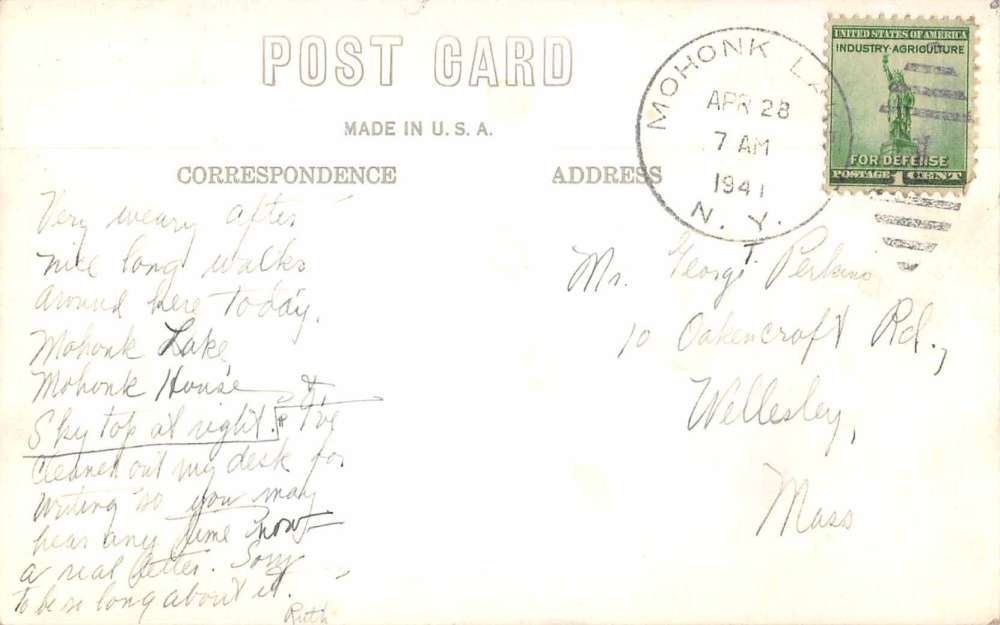 POST CARD
MADE IN U.S.A.
CORRESPONDENCE
ADDRESS
MOHONK LA
APR 28
7 AM
1941
N. Y.
UNITED STATES OF AMERICA
INDUSTRY·AGRICULTURE
FOR DEFENSE
POSTAGE 1 CENT
Very weary after
nice long walks
around here today.
Mohonk Lake
Mohonk House &
Sky top at right. I've
cleaned out my desk for
writing so you may
hear any time now
a real letter. Sorry
to be so long about it.
Ruth
Mr. George T. Perkins
10 Oakencroft Rd.,
Wellesley,
Mass